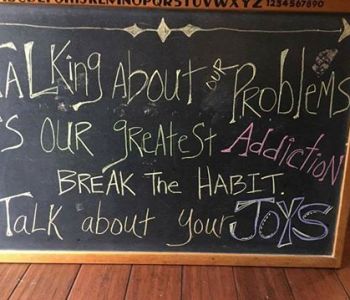 KLMNOPQRSTUVWXYZ 1234567890
TALKing About our Problems
is our greatest Addiction
BREAK The HABIT.
Talk about your JOYS